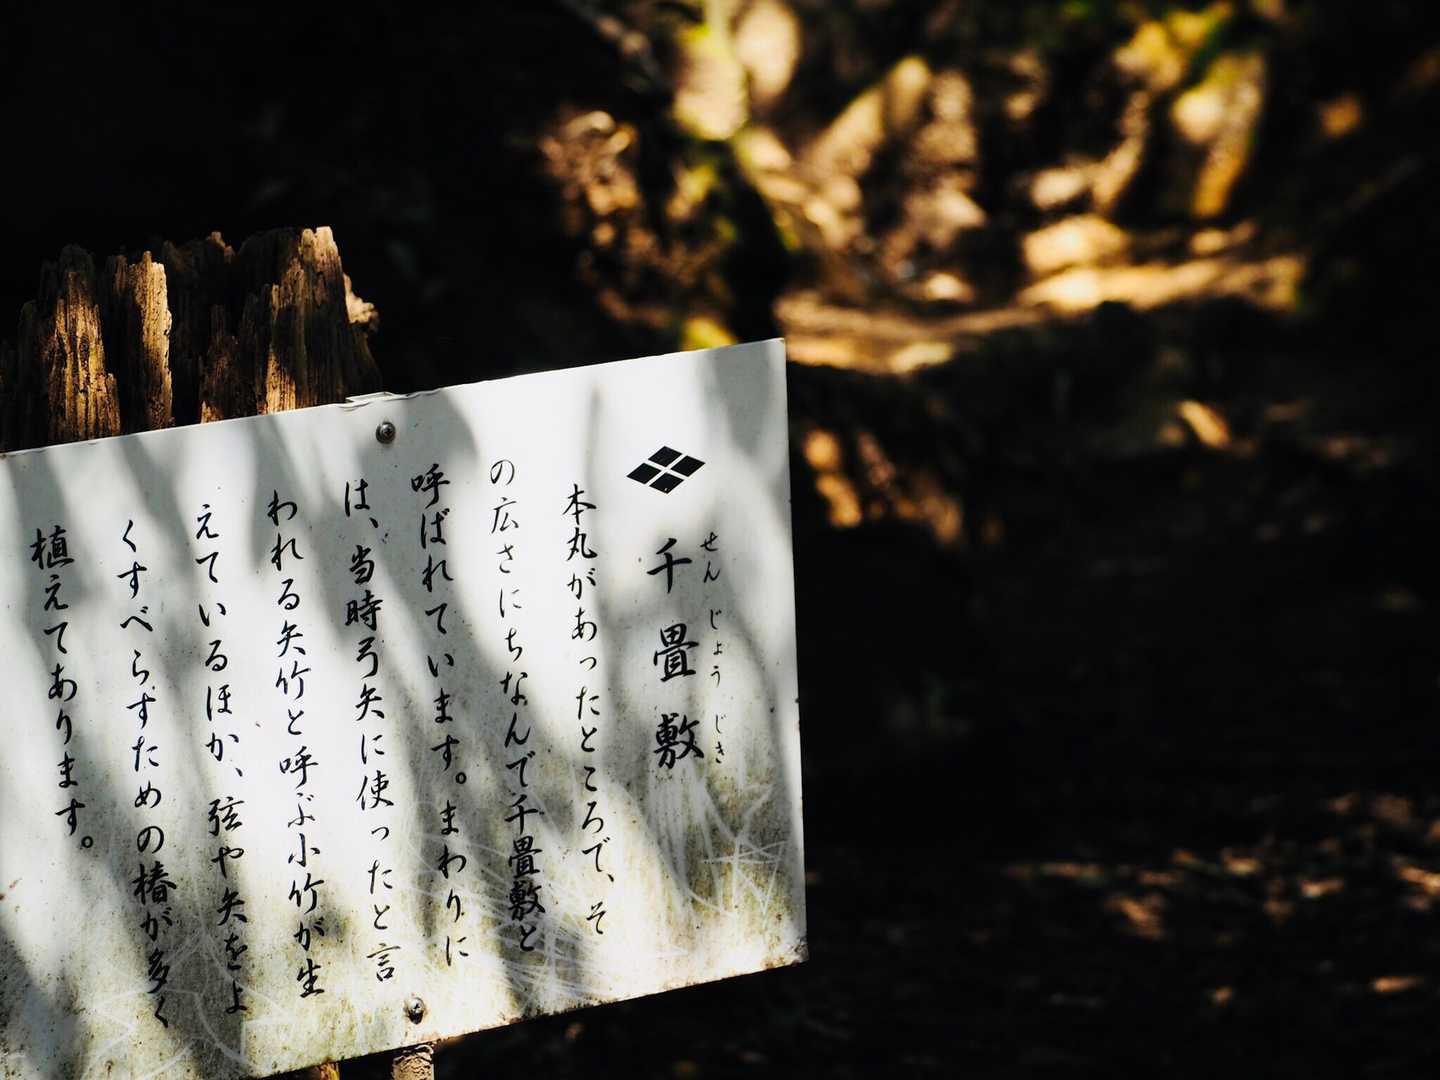 千畳敷
せんじょうじき
本丸があったところで、そ
の広さにちなんで千畳敷と
呼ばれています。まわりに
は、当時弓矢に使ったと言
われる矢竹と呼ぶ小竹が生
えているほか、弦や矢をよ
くすべらすための椿が多く
植えてあります。